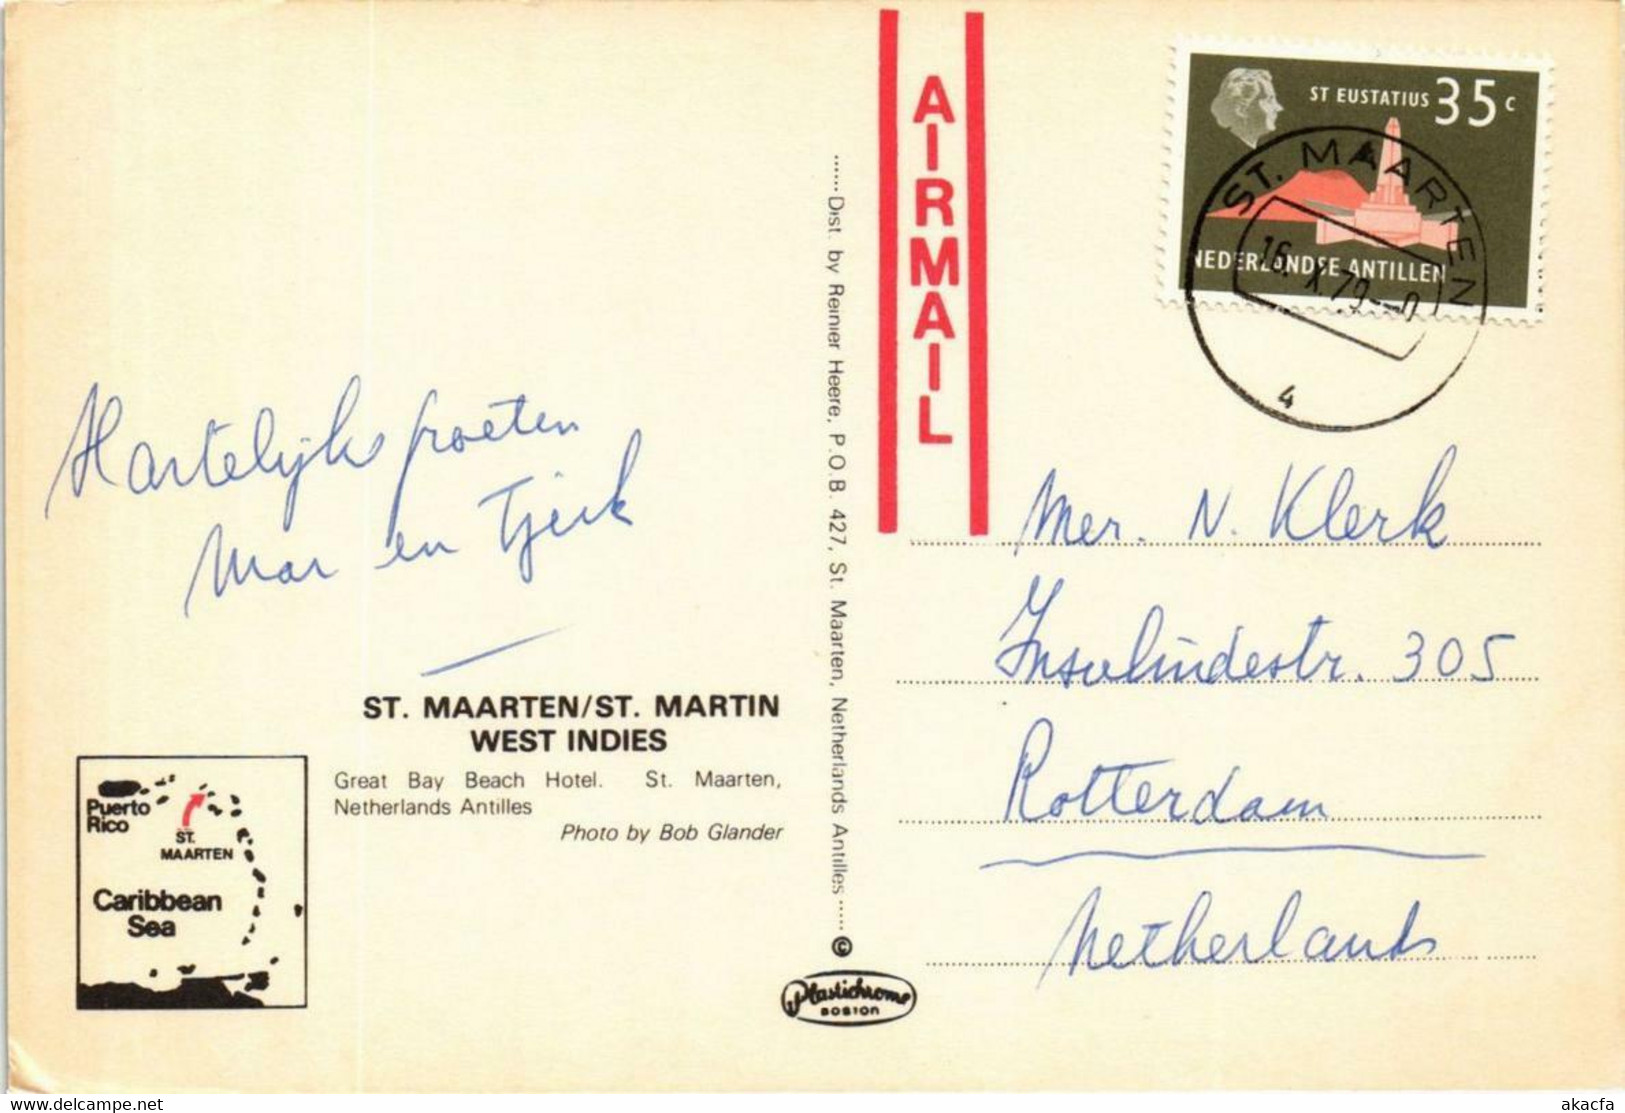 Hartelijks groeten
Mar en Tjerk
ST. MAARTEN/ST. MARTIN
WEST INDIES
Great Bay Beach Hotel. St. Maarten,
Netherlands Antilles
Photo by Bob Glander
Puerto
Rico
ST.
MAARTEN
Caribbean
Sea
......Dist. by Reinier Heere, P.O.B. 427, St. Maarten, Netherlands Antilles...... ©
Plastichrome
BOSTON
AIRMAIL
ST EUSTATIUS 35 c
NEDERLANDSE ANTILLEN
ST. MAARTEN
16. X.79
4
Mer. N. Klerk
Insulindestr. 305
Rotterdam
Netherlands
akacfa